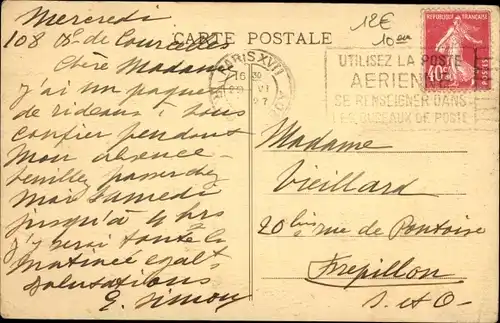 Mercredi
108 Bd de Courcelles
Chère Madame
j'ai un paquet
de rideaux à vous
confier pendant
mon absence
veuillez passer chez
moi Samedi
jusqu'à 4 hrs
j'y serai toute la
matinée égalt
Salutations
E. Simon
CARTE POSTALE
12€
10 au
PARIS XVII
16 30
29 VI
27
UTILISEZ LA POSTE
AERIENNE
SE RENSEIGNER DANS
LES BUREAUX DE POSTE
REPUBLIQUE FRANÇAISE
40c
POSTES
Madame
Vieillard
20bis rue de Pontoise
Frépillon
S. et O-